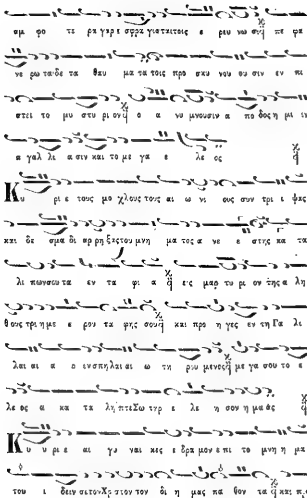 αμ φο τε ρα γαρ ε σφρα γισταιτοις ε ρευ νω σιν πε φα
νε ρω ται δε τα θαυ μα τα τοις προ σκυ νου ου σιν εν πι
στει το μυ στυ ρι ον ο α νυ μνουσιν α πο δος η μι ιν
α γαλ λι α σιν και το με γα ε λε ος
Κυ ρι ε τους μο χλους τους αι ω νι ους συν τρι ι ψας
και δε σμα δι αρ ρη ξας του μνη μα τος α νε ε στης κα τα
λι πων σου τα εν τα φι α εις μαρ τυ ρι ον της α λη
θους τρι η με ε ρου τα φης σου και προ η γες εν τη Γα λι
λαι αι α ο εν σπη λαι αι ω τη ρου μενος με γα σου το ε
λε ος α κα τα λη πτε Σω τηρ ε λε η σον η μα ας
Κυ υ ρι ε αι γυ ναι κες ε δρα μον ε πι το μνη η μα
του ι δειν σε τον Χρι στον τον δι η μας πα θον τα και π